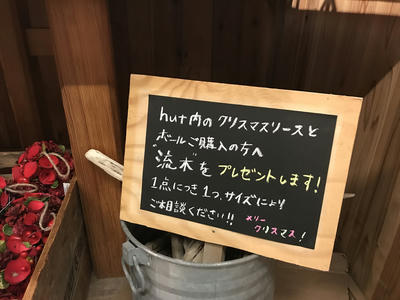 hut内の クリスマスリースと
ボールご購入の方へ
"流木"を プレゼントします!
1点につき1つ、サイズにより
ご相談ください!! メリー
クリスマス!